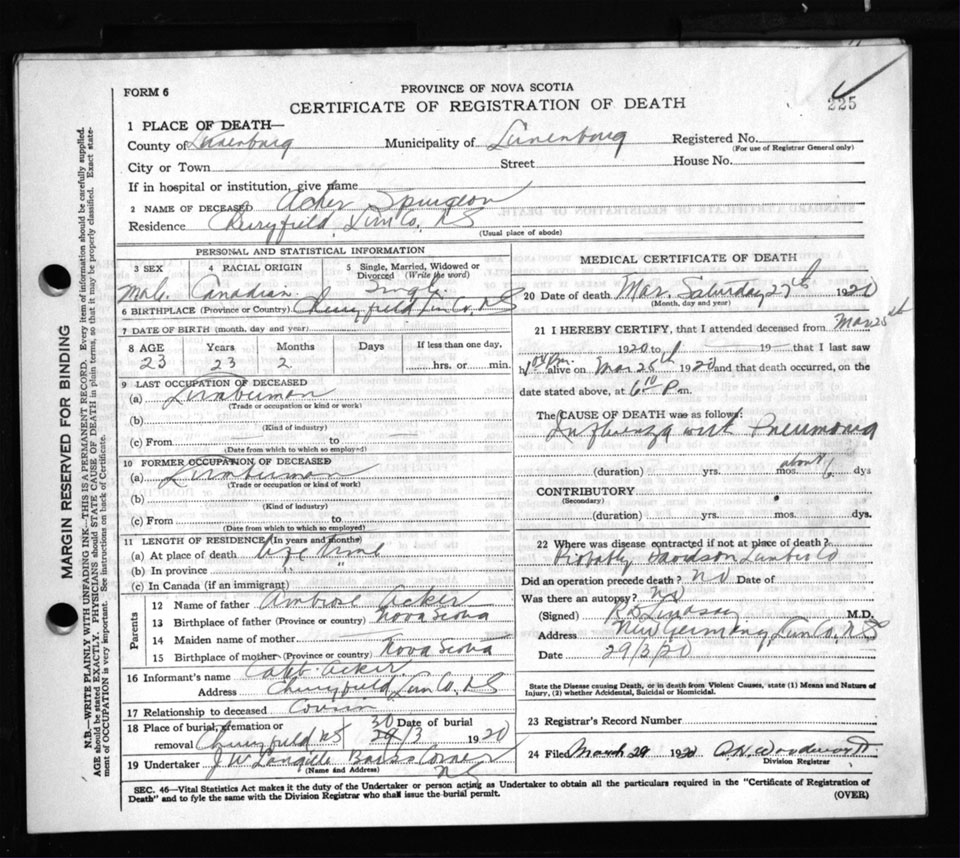 PROVINCE OF NOVA SCOTIA
FORM 6
CERTIFICATE OF REGISTRATION OF DEATH
225
1 PLACE OF DEATH—
County of Lunenburg Municipality of Lunenburg Registered No.
(For use of Registrar General only)
City or Town Street House No.
If in hospital or institution, give name
2 NAME OF DECEASED Acker Spurgeon
Residence Cherryfield, Lun Co, NS
(Usual place of abode)
PERSONAL AND STATISTICAL INFORMATION
3 SEX 4 RACIAL ORIGIN 5 Single, Married, Widowed or Divorced (Write the word)
Male Canadian Single
6 BIRTHPLACE (Province or Country) Cherryfield Lun Co, NS
7 DATE OF BIRTH (month, day and year)
8 AGE Years Months Days If less than one day,
23 23 2 hrs. or min.
9 LAST OCCUPATION OF DECEASED
(a) Lumberman
(Trade or occupation or kind or work)
(b)
(Kind of industry)
(c) From to
(Date from which to which so employed)
10 FORMER OCCUPATION OF DECEASED
(a) Lumberman
(Trade or occupation or kind of work)
(b)
(Kind of industry)
(c) From to
(Date from which to which so employed)
11 LENGTH OF RESIDENCE (In years and months)
(a) At place of death Life time
(b) In province " "
(c) In Canada (if an immigrant)
Parents
12 Name of father Ambrose Acker
13 Birthplace of father (Province or country) Nova Scotia
14 Maiden name of mother
15 Birthplace of mother (Province or country) Nova Scotia
16 Informant's name Acker
Address Cherryfield, Lun Co, NS
17 Relationship to deceased Cousin
18 Place of burial, cremation or removal Cherryfield NS Date of burial 30 29/3 1920
19 Undertaker J W Langille Barss Corner NS
(Name and Address)
MEDICAL CERTIFICATE OF DEATH
20 Date of death Mar. Saturday 27th 1920
(Month, day and year)
21 I HEREBY CERTIFY, that I attended deceased from Mar 25th
1920 to 19 — that I last saw
h alive on Mar 25th 1920 and that death occurred, on the
date stated above, at 6 P m.
The CAUSE OF DEATH was as follows:
Influenza with Pneumonia
(duration) yrs. mos. about 6 dys
CONTRIBUTORY
(Secondary)
(duration) yrs. mos. dys.
22 Where was disease contracted if not at place of death?
Probably Davidson Lumber Co
Did an operation precede death? NO Date of
Was there an autopsy? NO
(Signed) R D Lindsay M.D.
Address New Germany, Lun Co, NS
Date 29/3/20
State the Disease causing Death, or in death from Violent Causes, state (1) Means and Nature of
Injury, (2) whether Accidental, Suicidal or Homicidal.
23 Registrar's Record Number
24 Filed March 29 1920
Division Registrar
SEC. 46—Vital Statistics Act makes it the duty of the Undertaker or person acting as Undertaker to obtain all the particulars required in the "Certificate of Registration of
Death" and to fyle the same with the Division Registrar who shall issue the burial permit. (OVER)
MARGIN RESERVED FOR BINDING
N.B.—WRITE PLAINLY WITH UNFADING INK—THIS IS A PERMANENT RECORD. Every item of information should be carefully supplied.
AGE should be stated EXACTLY. PHYSICIANS should STATE CAUSE OF DEATH in plain terms, so that it may be properly classified. Exact state-
ment of OCCUPATION is very important. See instructions on back of Certificate.